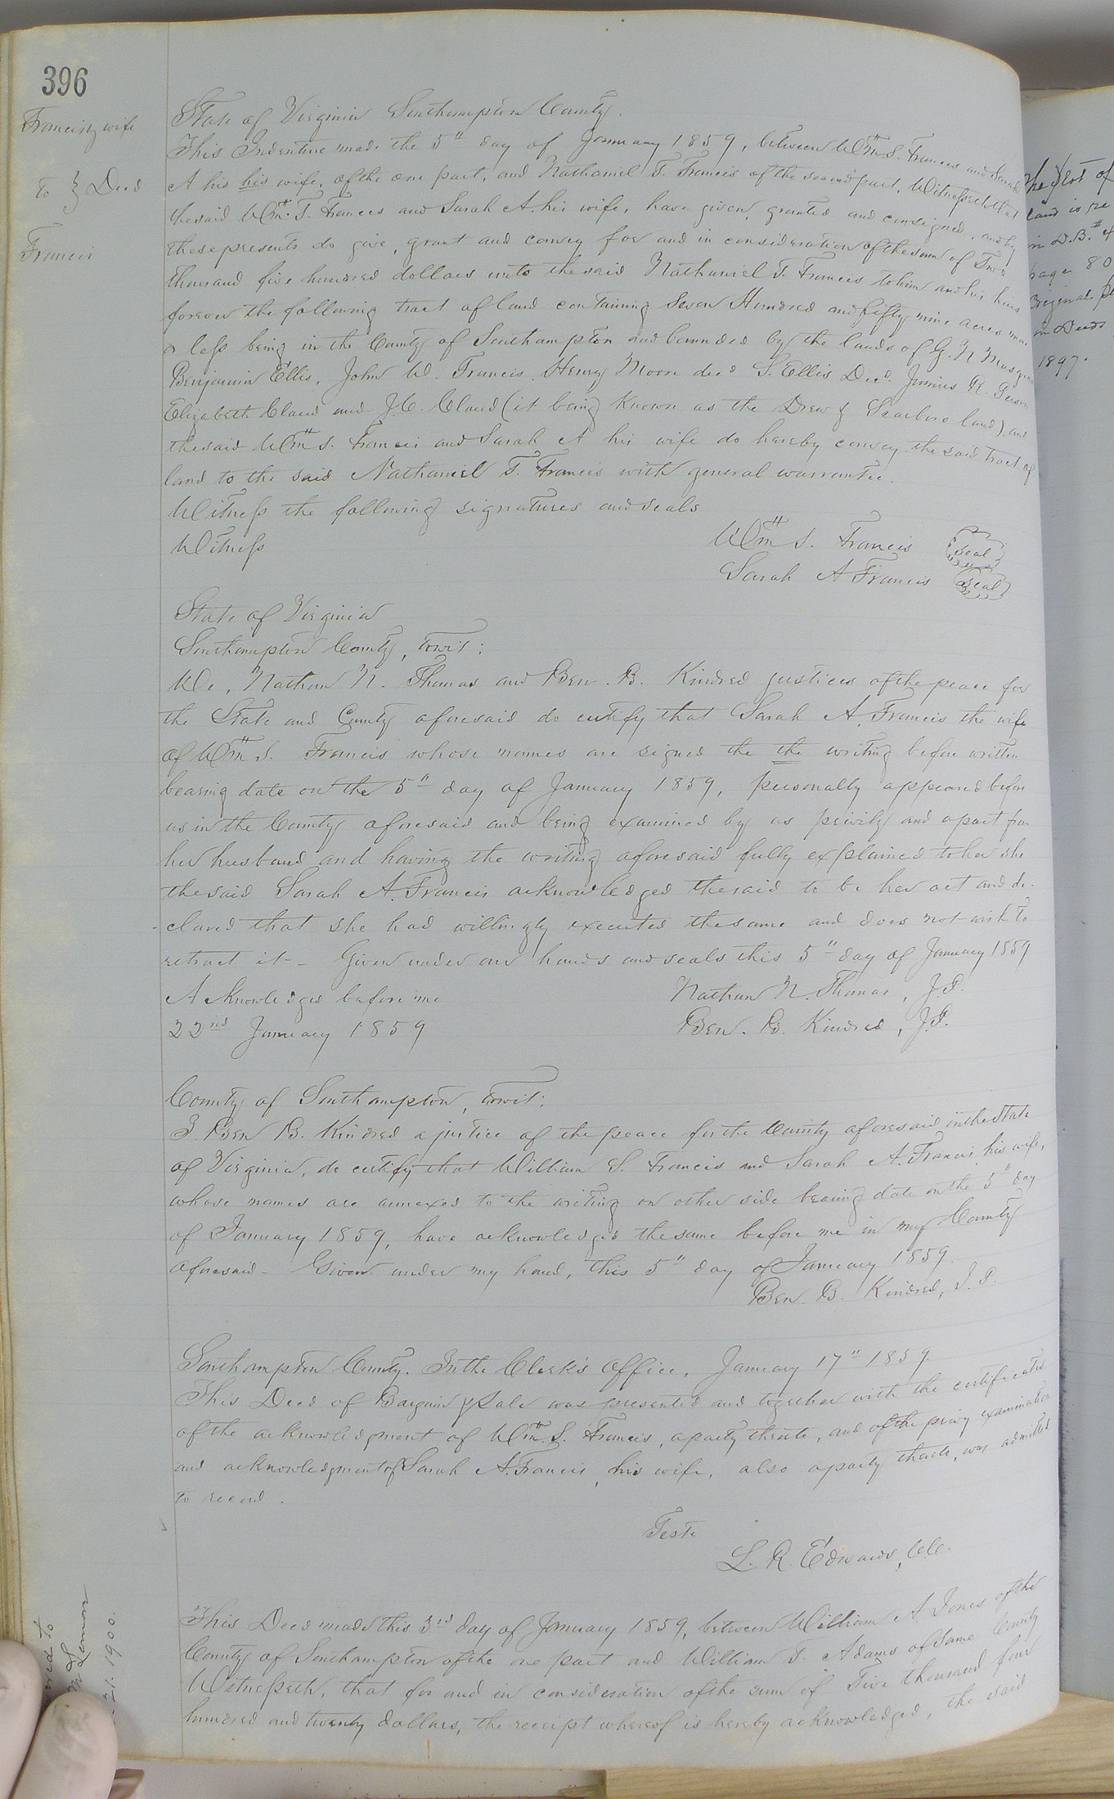 396
Francis & wife
To } Deed
Francis
State of Virginia Southampton County.
This Indenture made the 5th day of January 1859, between Wm S. Francis and Sarah
A his his wife, of the one part, and Nathaniel T. Francis of the second part, Witnesseth that
the said Wm. S. Francis and Sarah A. his wife, have given, granted and consigned, and by
these presents do give, grant and convey for and in consideration of the sum of
thousand five hundred dollars unto the said Nathaniel T. Francis to him and his heirs
forever the following tract of land containing Seven Hundred and fifty nine acres more
or less being in the County of Southampton and bounded by the lands of G. N.
Benjamin Ellis, John W. Francis, Henry Moore dec'd S. Ellis Dec'd. Junius
Elizabeth Claud and J.C. Claud (it being known as the Drew & Scarboro land), and
the said Wm S. Francis and Sarah A his wife do hereby convey the said tract of
land to the said Nathaniel T. Francis with general warrantee.
Witness the following signatures and seals
Witness Wm S. Francis seal
Sarah A Francis seal
State of Virginia
Southampton County, towit:
We, Nathan N. Thomas and Ben. B. Kindred justices of the peace for
the State and County aforesaid do certify that Sarah A. Francis the wife
of Wm S. Francis whose names are signed the the writing before written
bearing date on the 5th day of January 1859, personally appeared before
us in the County aforesaid and being examined by us privily and apart from
her husband and having the writing aforesaid fully explained to her she
the said Sarah A. Francis acknowledged the said to be her act and de-
clared that she had willingly executed the same and does not wish to
retract it - Given under our hands and seals this 5th day of January 1859
Acknowledged before me Nathan N. Thomas, J.P.
22nd January 1859 Ben. B. Kindred, J.P.
County of Southampton, towit:
I Ben B. Kindred a justice of the peace for the County aforesaid in the State
of Virginia, do certify that William S. Francis and Sarah A. Francis his wife,
whose names are annexed to the writing on other side bearing date on the 5th day
of January 1859, have acknowledged the same before me in my County
aforesaid - Given under my hand, this 5th day of January 1859.
Ben. B. Kindred, J.P.
Southampton County. In the Clerk's Office, January 17th 1859
This Deed of Bargain & Sale was presented and together with the certificates
of the acknowledgment of Wm. S. Francis, a party thereto, and of the privy examination
and acknowledgment of Sarah A. Francis, his wife, also a party thereto, was admitted
to record.
Teste
L. R. Edwards, C.C.
This Deed made this 3rd day of January 1859, between William A. Jones of the
County of Southampton of the one part and William T. Adams of same County
Witnesseth, that for and in consideration of the sum of Five thousand four
hundred and twenty dollars, the receipt whereof is hereby acknowledged, the said
The plot of
land is
in D.B.
page 80
original
in Deeds
1897.
to
21. 1900.